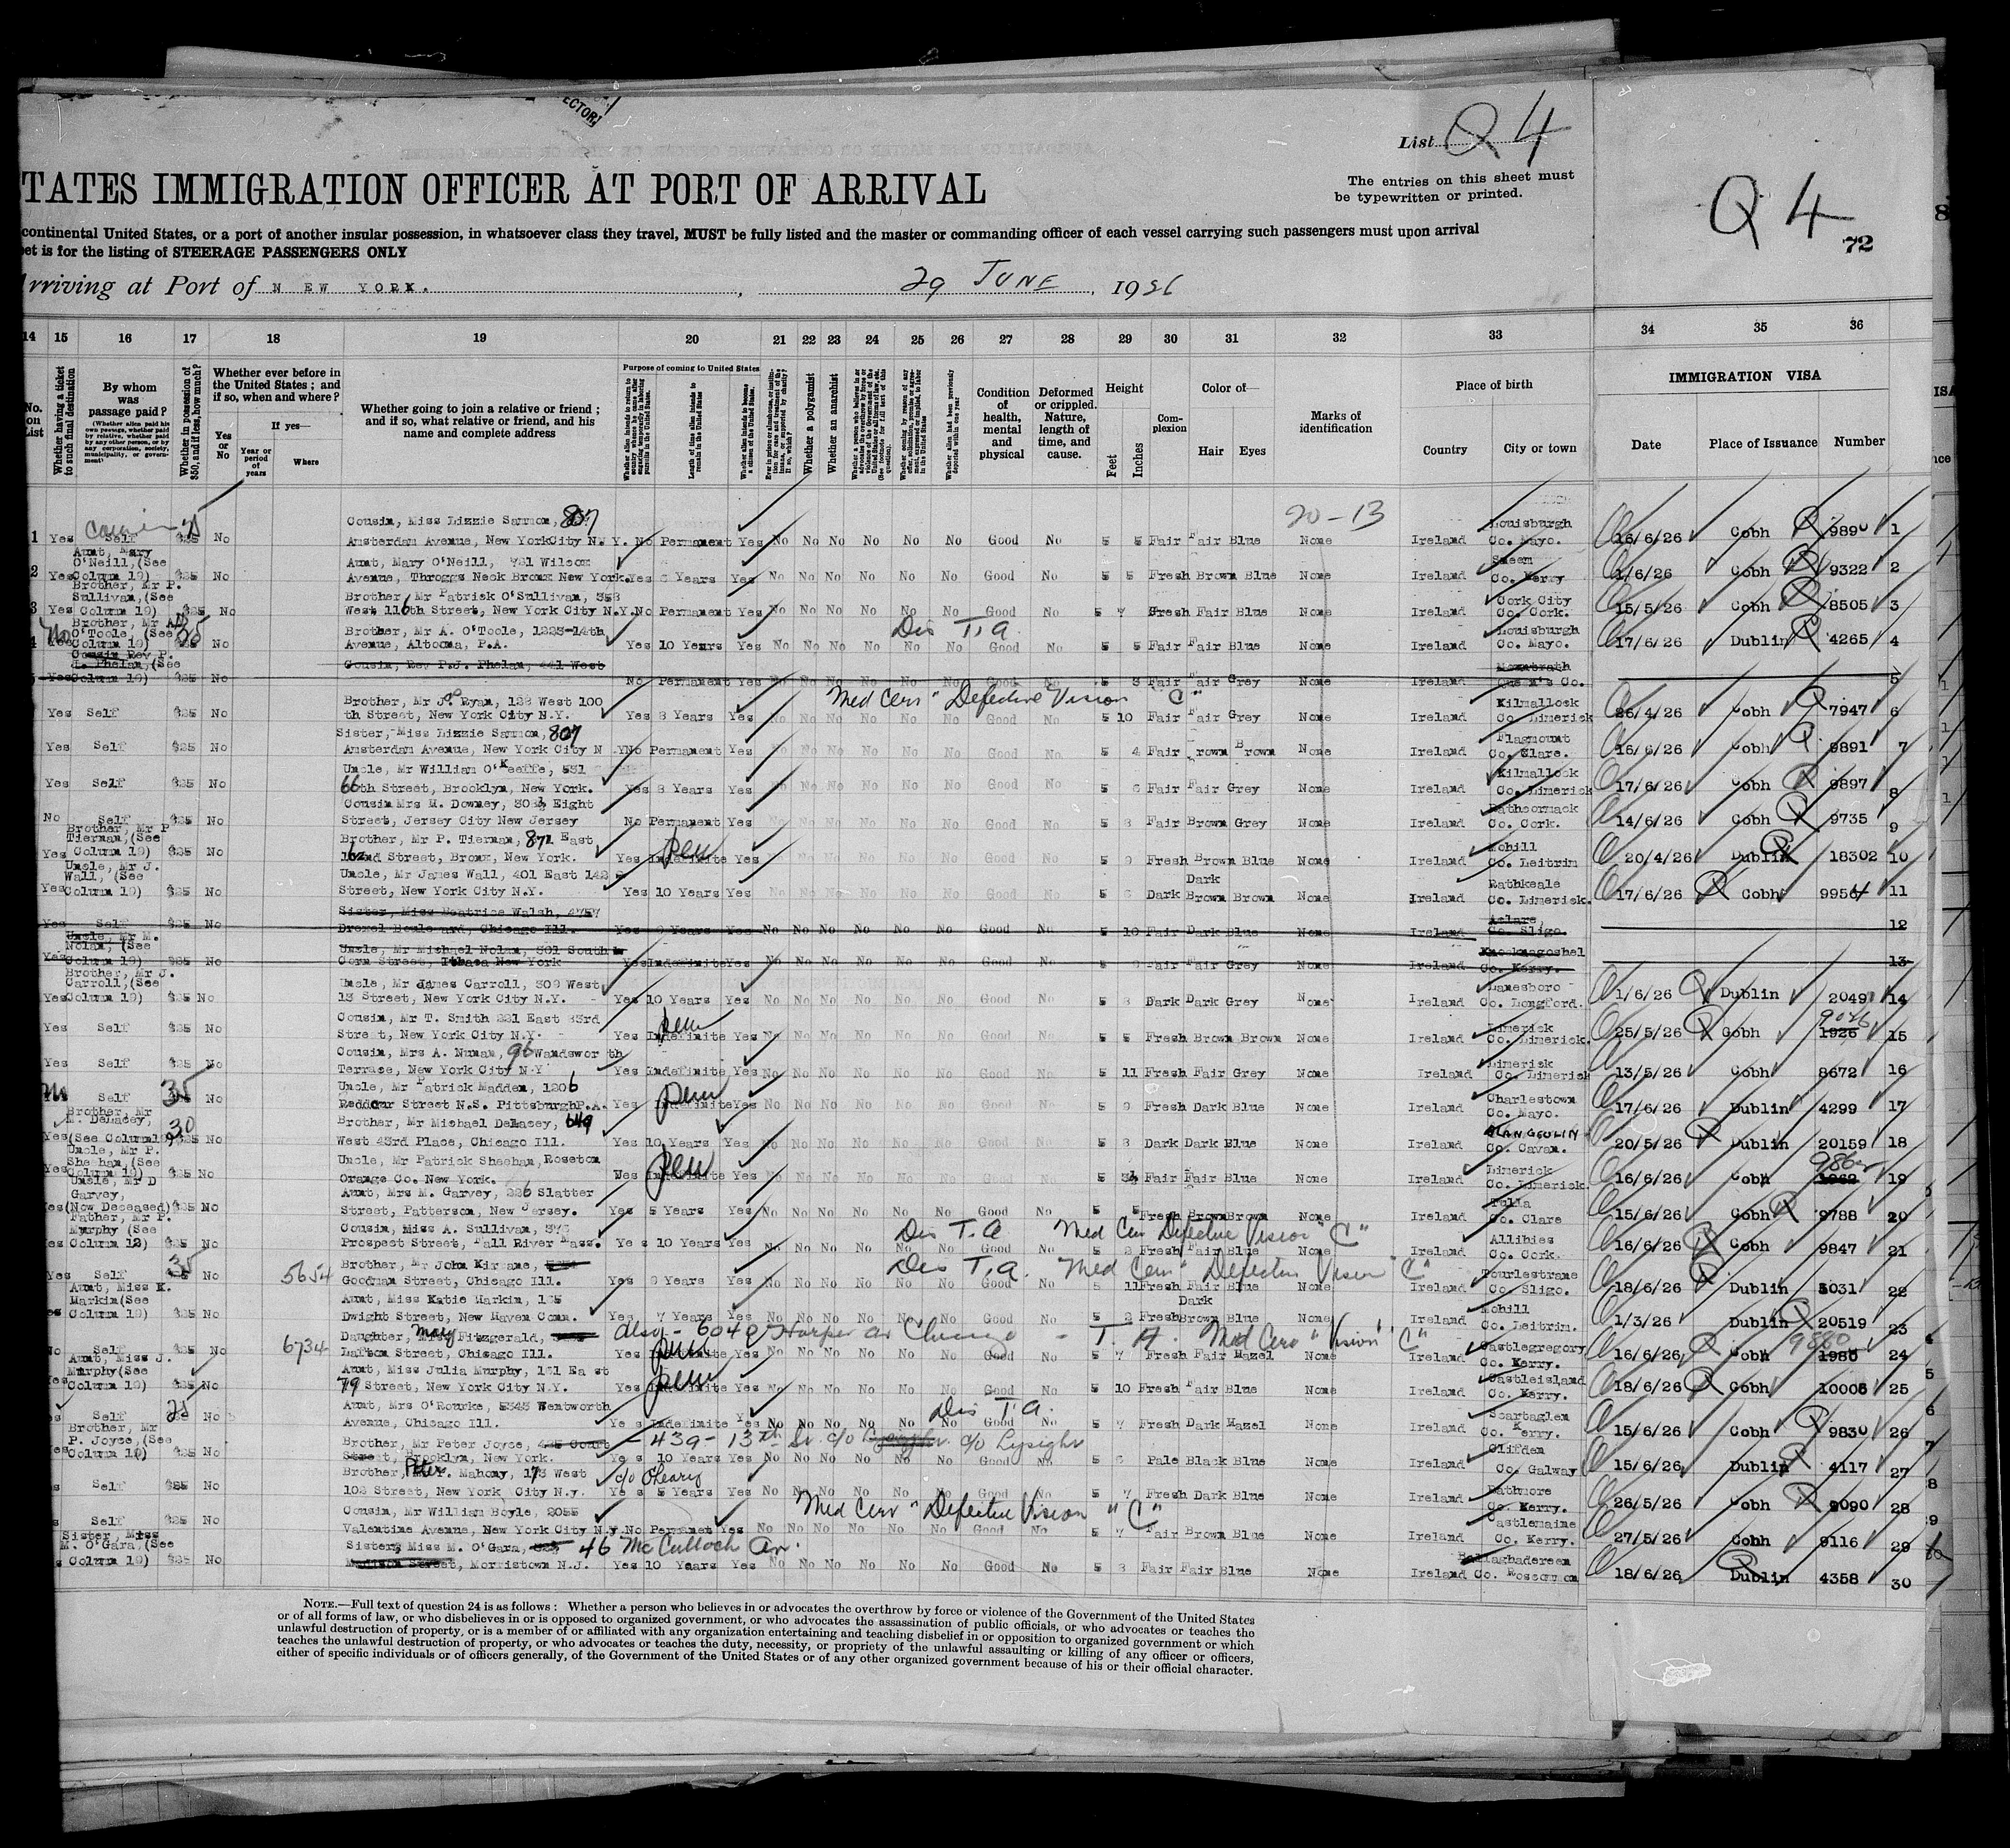 ECTOR
List Q 4
TATES IMMIGRATION OFFICER AT PORT OF ARRIVAL
The entries on this sheet must
be typewritten or printed.
Q 4
72
continental United States, or a port of another insular possession, in whatsoever class they travel, MUST be fully listed and the master or commanding officer of each vessel carrying such passengers must upon arrival
et is for the listing of STEERAGE PASSENGERS ONLY
rriving at Port of NEW YORK. , 29 JUNE , 1926
14 15 16 17 18 19 20 21 22 23 24 25 26 27 28 29 30 31 32 33 34 35 36
No. on List
Whether having a ticket to such final destination
By whom was passage paid?
(Whether alien paid his own passage, whether paid by relative, whether paid by any other person, or by any corporation, society, municipality, or government)
Whether in possession of $50, and if less, how much?
Whether ever before in the United States; and if so, when and where?
Yes or No
If yes—
Year or period of years
Where
Whether going to join a relative or friend; and if so, what relative or friend, and his name and complete address
Purpose of coming to United States
Length of time alien intends to remain in the United States
Whether a polygamist
Whether an anarchist
Condition of health, mental and physical
Deformed or crippled. Nature, length of time, and cause.
Height
Feet
Inches
Complexion
Color of—
Hair Eyes
Marks of identification
Place of birth
Country City or town
IMMIGRATION VISA
Date Place of Issuance Number
20-13
Cousin, Miss Lizzie Sammon, 807 Louisburgh
1 Yes Self $25 No Amsterdam Avenue, New YorkCity N.Y. No Permanent Yes No No No No No No Good No 5 5 Fair Fair Blue None Ireland Co. Mayo. 16/6/26 Cobh 9890 1
Aunt, Mary O'Neill, (See Aunt, Mary O'Neill, 721 Wilcox Sneem
2 Yes Column 19) $25 No Avenue, Throggs Neck Bronx New York. Yes Years Yes No No No No No No Good No 5 5 Fresh Brown Blue None Ireland Co. Kerry 1/6/26 Cobh 9322 2
Brother, Mr P. Sullivan, (See Brother, Mr Patrick O'Sullivan, 353 Cork City
3 Yes Column 19) $25 No West 116th Street, New York City N.Y. No Permanent Yes No No No No No No Good No 5 7 Fresh Fair Blue None Ireland Co. Cork. 15/5/26 Cobh 8505 3
Brother, Mr A. O'Toole, (See Brother, Mr A. O'Toole, 1223-14th Dis T.A. Louisburgh
4 Column 19) $25 No Avenue, Altoona, P.A. Yes 10 Years Yes No No No No No No Good No 5 5 Fair Fair Blue None Ireland Co. Mayo. 17/6/26 Dublin 4265 4
Cousin Rev P. J. Phelan, (See Cousin, Rev P.J. Phelan, 441 West Mountrath
Yes Column 19) $25 No No Permanent Yes No No No No No No Good No 5 3 Fair Fair Grey None Ireland Queen's Co. 5
Brother, Mr J. Ryan, 123 West 100 Med Cert "Defective Vision "C" Kilmallock
Yes Self $25 No th Street, New York City N.Y. Yes 3 Years Yes No No No No No No Good No 5 10 Fair Fair Grey None Ireland Co. Limerick 26/4/26 Cobh 7947 6
Sister, Miss Lizzie Sammon, 807 Flagmount
Yes Self $25 No Amsterdam Avenue, New York City N Y No Permanent Yes No No No No No No Good No 5 4 Fair Brown Brown None Ireland Co. Clare. 16/6/26 Cobh 9891 7
Uncle, Mr William O'Keeffe, 531 Kilmallock
Yes Self $25 No 66th Street, Brooklyn, New York. Yes 3 Years Yes No No No No No No Good No 5 6 Fair Fair Grey None Ireland Co. Limerick 17/6/26 Cobh 9897 8
Cousin Mrs M. Downey, 303½ Eight Rathcormack
No Self $25 No Street, Jersey City New Jersey No Permanent Yes No No No No No No Good No 5 3 Fair Brown Grey None Ireland Co. Cork. 14/6/26 Cobh 9735 9
Brother, Mr P Tiernan, (See Brother, Mr P. Tiernan, 871 East Mohill
Yes Column 19) $25 No 162nd Street, Bronx, New York. Yes Indefinite Yes No No No No No Good No 5 9 Fresh Brown Blue None Ireland Co. Leitrim 20/4/26 Dublin 18302 10
Uncle, Mr J. Wall, (See Uncle, Mr James Wall, 401 East 142 Dark Rathkeale
Yes Column 19) $25 No Street, New York City N.Y. Yes 10 Years Yes No No No No No No Good No 5 6 Dark Brown Brown None Ireland Co. Limerick. 17/6/26 Cobh 9954 11
Sister, Miss Beatrice Walsh, 4757
Yes Self $25 No Drexel Boulevard, Chicago Ill. Yes Years Yes No No No No No No Good No 5 10 Fair Dark Blue None Ireland Co. Sligo. 12
Uncle, Mr M. Nolan, (See Uncle, Mr Michael Nolan, 301 South Knocknagoshel
Yes Column 19) $25 No Corn Street, Ithaca New York Yes Indefinite Yes No No No No No No Good No 5 Fair Fair Grey None Ireland Co. Kerry. 13
Brother, Mr J. Carroll, (See Uncle, Mr James Carroll, 309 West Lanesboro
Yes Column 19) $25 No 13 Street, New York City N.Y. Yes 10 Years Yes No No No No No No Good No 5 8 Dark Dark Grey None Ireland Co. Longford. 1/6/26 Dublin 2049 14
Cousin, Mr T. Smith 221 East 83rd Perm Limerick 9026
Yes Self $25 No Street, New York City N.Y. Yes Indefinite Yes No No No No No No Good No 5 5 Fresh Brown Brown None Ireland Co. Limerick. 25/5/26 Cobh 1926 15
Cousin, Mrs A. Nunan, 96 Wandsworth Limerick
Yes Self $25 No Terrace, New York City N.Y Yes Indefinite Yes No No No No No No Good No 5 11 Fresh Fair Grey None Ireland Co. Limerick 13/5/26 Cobh 8672 16
Uncle, Mr Patrick Madden, 1206 Perm Charlestown
35 Self No Reddour Street N.S. Pittsburgh P.A. Yes Indefinite Yes No No No No No No Good No 5 9 Fresh Dark Blue None Ireland Co. Mayo. 17/6/26 Dublin 4299 17
Brother, Mr M. DeLacey, 30 Brother, Mr Michael DeLacey, 649
Yes (See Column 19) $25 No West 43rd Place, Chicago Ill. Yes 10 Years Yes No No No No No No Good No 5 8 Dark Dark Blue None Ireland Co. Cavan. 20/5/26 Dublin 20159 18
Uncle, Mr P. Sheehan, (See Uncle, Mr Patrick Sheehan, Roseton Perm Limerick
Yes Column 19) $25 No Orange Co. New York. Yes Indefinite Yes No No No No No No Good No 5 3½ Fair Fair Blue None Ireland Co. Limerick. 16/6/26 Cobh 1962 19
Uncle, Mr D Garvey, Aunt, Mrs M. Garvey, 226 Slatter Tulla
es (Now Deceased) $25 No Street, Patterson, New Jersey. Yes 5 Years Yes No No No No No No Good No 5 5 Fresh Brown Brown None Ireland Co. Clare 15/6/26 Cobh 9788 20
Father, Mr P. Murphy (See Cousin, Miss A. Sullivan, 373 Dis T.A Med Cert Defective Vision "C" Allihies
es Column 19) $25 No Prospect Street, Fall River Mass. Yes 10 Years Yes No No No No No No Good No 5 2 Fresh Fair Blue None Ireland Co. Cork. 16/6/26 Cobh 9847 21
35 5654 Brother, Mr John Kirrane, Dis T.A. "Med Cert" Defective Vision "C" Tourlestrane
Yes Self No Goodman Street, Chicago Ill. Yes 3 Years Yes No No No No No No Good No 5 11 Fresh Fair Blue None Ireland Co. Sligo. 18/6/26 Dublin 5031 22
Aunt, Miss K. Markin (See Aunt, Miss Katie Markin, 165 Dark Mohill
es Column 19) $25 No Dwight Street, New Haven Conn. Yes 7 Years Yes No No No No No No Good No 5 2 Fresh Brown Blue None Ireland Co. Leitrim. 1/3/26 Dublin 20519 23
6734 Daughter, Miss May Fitzgerald, also - 6040 Harper av Chicago - T.A. Med Cert "Vision" "C" Castlegregory 9880
No Self No Laflin Street, Chicago Ill. Yes Indefinite Yes No No No No No No Good No 5 7 Fresh Fair Hazel None Ireland Co. Kerry. 16/6/26 Cobh 1980 24
Aunt, Miss J. Murphy (See Aunt, Miss Julia Murphy, 161 East Perm Castleisland
Yes Column 19) No 79 Street, New York City N.Y. Yes Yes No No No No No No Good No 5 10 Fresh Fair Blue None Ireland Co. Kerry. 18/6/26 Cobh 10005 25
Aunt, Mrs O'Rourke, 5343 Wentworth Dis T.A. Scartaglen
es Self No Avenue, Chicago Ill. Yes Indefinite Yes No No No No No No Good No 5 7 Fresh Dark Hazel None Ireland Co. Kerry. 15/6/26 Cobh 9830 26
Brother, Mr P. Joyce, (See Brother, Mr Peter Joyce, 425 Court - 439 - 13th St. c/o Lysight Clifden
es Column 19) $25 No Street, Brooklyn, New York. Yes 10 Years Yes No No No No No No Good No 5 6 Pale Black Blue None Ireland Co. Galway 15/6/26 Dublin 4117 27
Brother, Mr Peter P. Mahony, 173 West c/o O'Leary Rathmore
s Self $25 No 102 Street, New York City N.y. Yes 5 Years Yes No No No No No No Good No 5 7 Fresh Dark Blue None Ireland Co. Kerry. 26/5/26 Cobh 9090 28
Cousin, Mr William Boyle, 2055 Med Cert "Defective Vision "C" Castlemaine
s Self $25 No Valentine Avenue, New York City N.y No Permanet Yes No No No No No No Good No 5 7 Fair Brown Blue None Ireland Co. Kerry. 27/5/26 Cobh 9116 29
Sister, Miss M. O'Gara, (See Sister, Miss M. O'Gara, 46 McCulloch Av. Ballaghadereen
s Column 19) $25 No Madison Street, Morristown N.J. Yes 10 Years Yes No No No No No No Good No 5 3 Fair Fair Blue None Ireland Co. Roscommon 18/6/26 Dublin 4358 30
NOTE.—Full text of question 24 is as follows: Whether a person who believes in or advocates the overthrow by force or violence of the Government of the United States
or of all forms of law, or who disbelieves in or is opposed to organized government, or who advocates the assassination of public officials, or who advocates or teaches the
unlawful destruction of property, or is a member of or affiliated with any organization entertaining and teaching disbelief in or opposition to organized government or which
teaches the unlawful destruction of property, or who advocates or teaches the duty, necessity, or propriety of the unlawful assaulting or killing of any officer or officers,
either of specific individuals or of officers generally, of the Government of the United States or of any other organized government because of his or their official character.